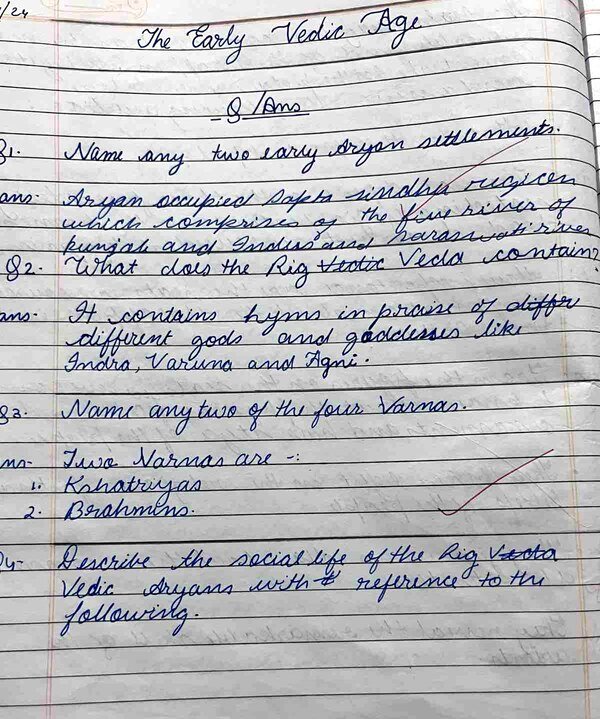 /24
The Early Vedic Age
Q/Ans
Q1. Name any two early Aryan settlements.
ans- Aryan occupied Sapta sindhu region
which comprises of the five river of
punjab and Indus and saraswati river
Q2. What does the Rig Vedic Veda contain?
ans- It contains hyms in praise of differ
different gods and goddesses like
Indra, Varuna and Agni.
Q3. Name any two of the four Varnas.
ns- Two Varnas are -:
1. Kshatriyas
2. Brahmins.
Q4- Describe the social life of the Rig Veda
Vedic Aryans with reference to the
following.